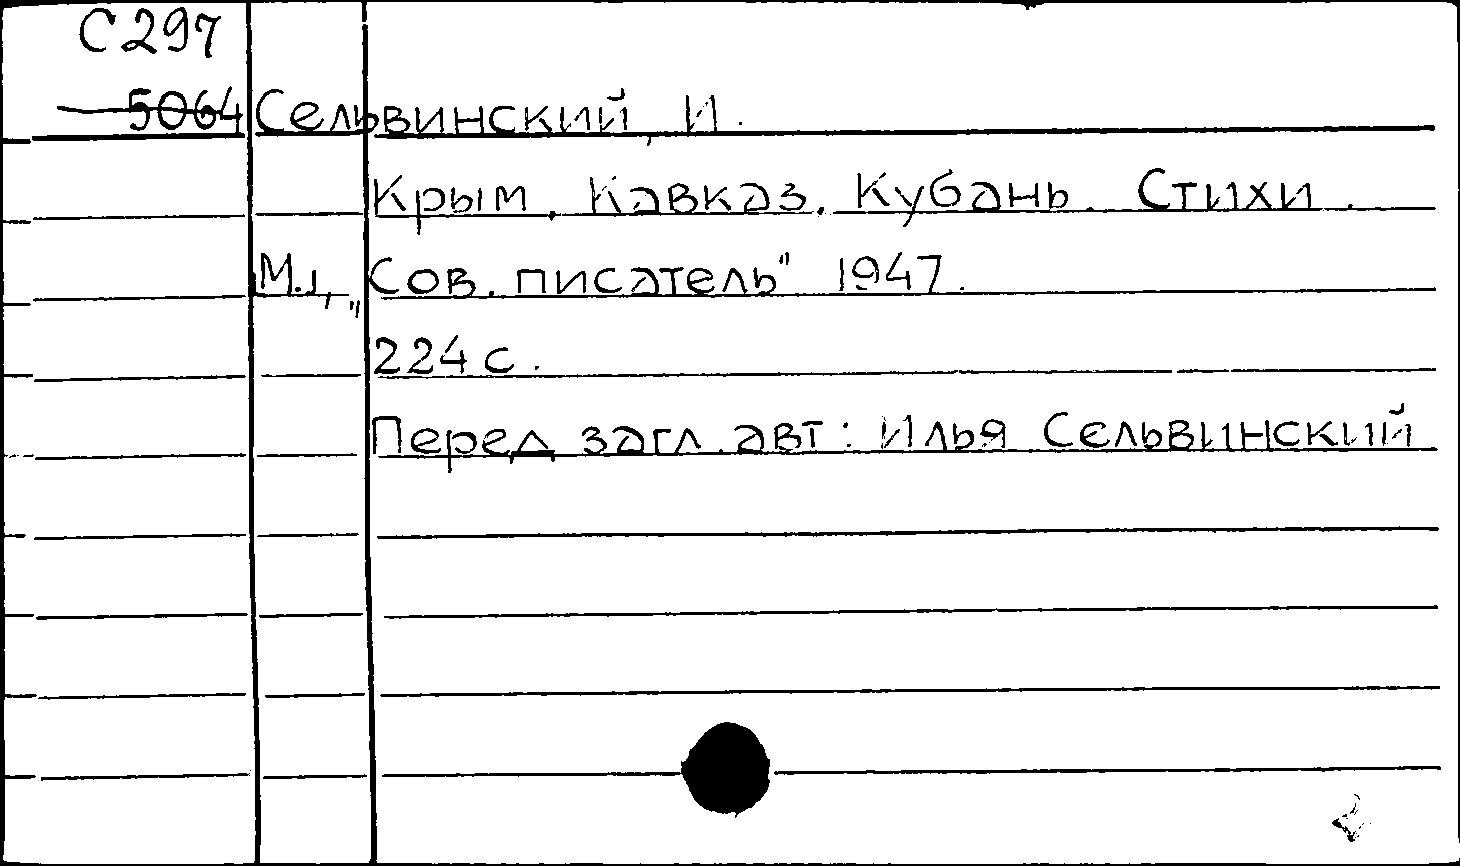 С 297
5064 Сельвинский, И.
Крым. Кавказ. Кубань. Стихи.
М., „Сов. писатель" 1947.
224 с.
Перед загл. авт: Илья Сельвинский